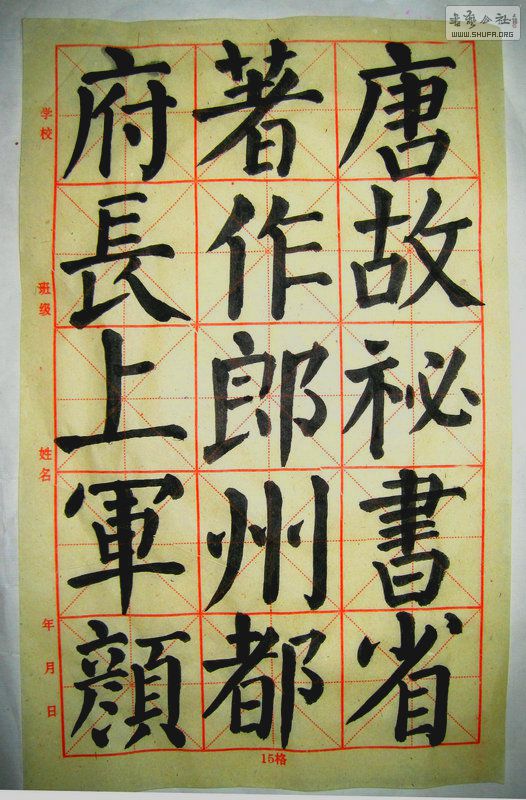 唐故祕書省
著作郎州都
府長上軍顔
学校
班级
姓名
年月日
15格
书艺公社
WWW.SHUFA.ORG